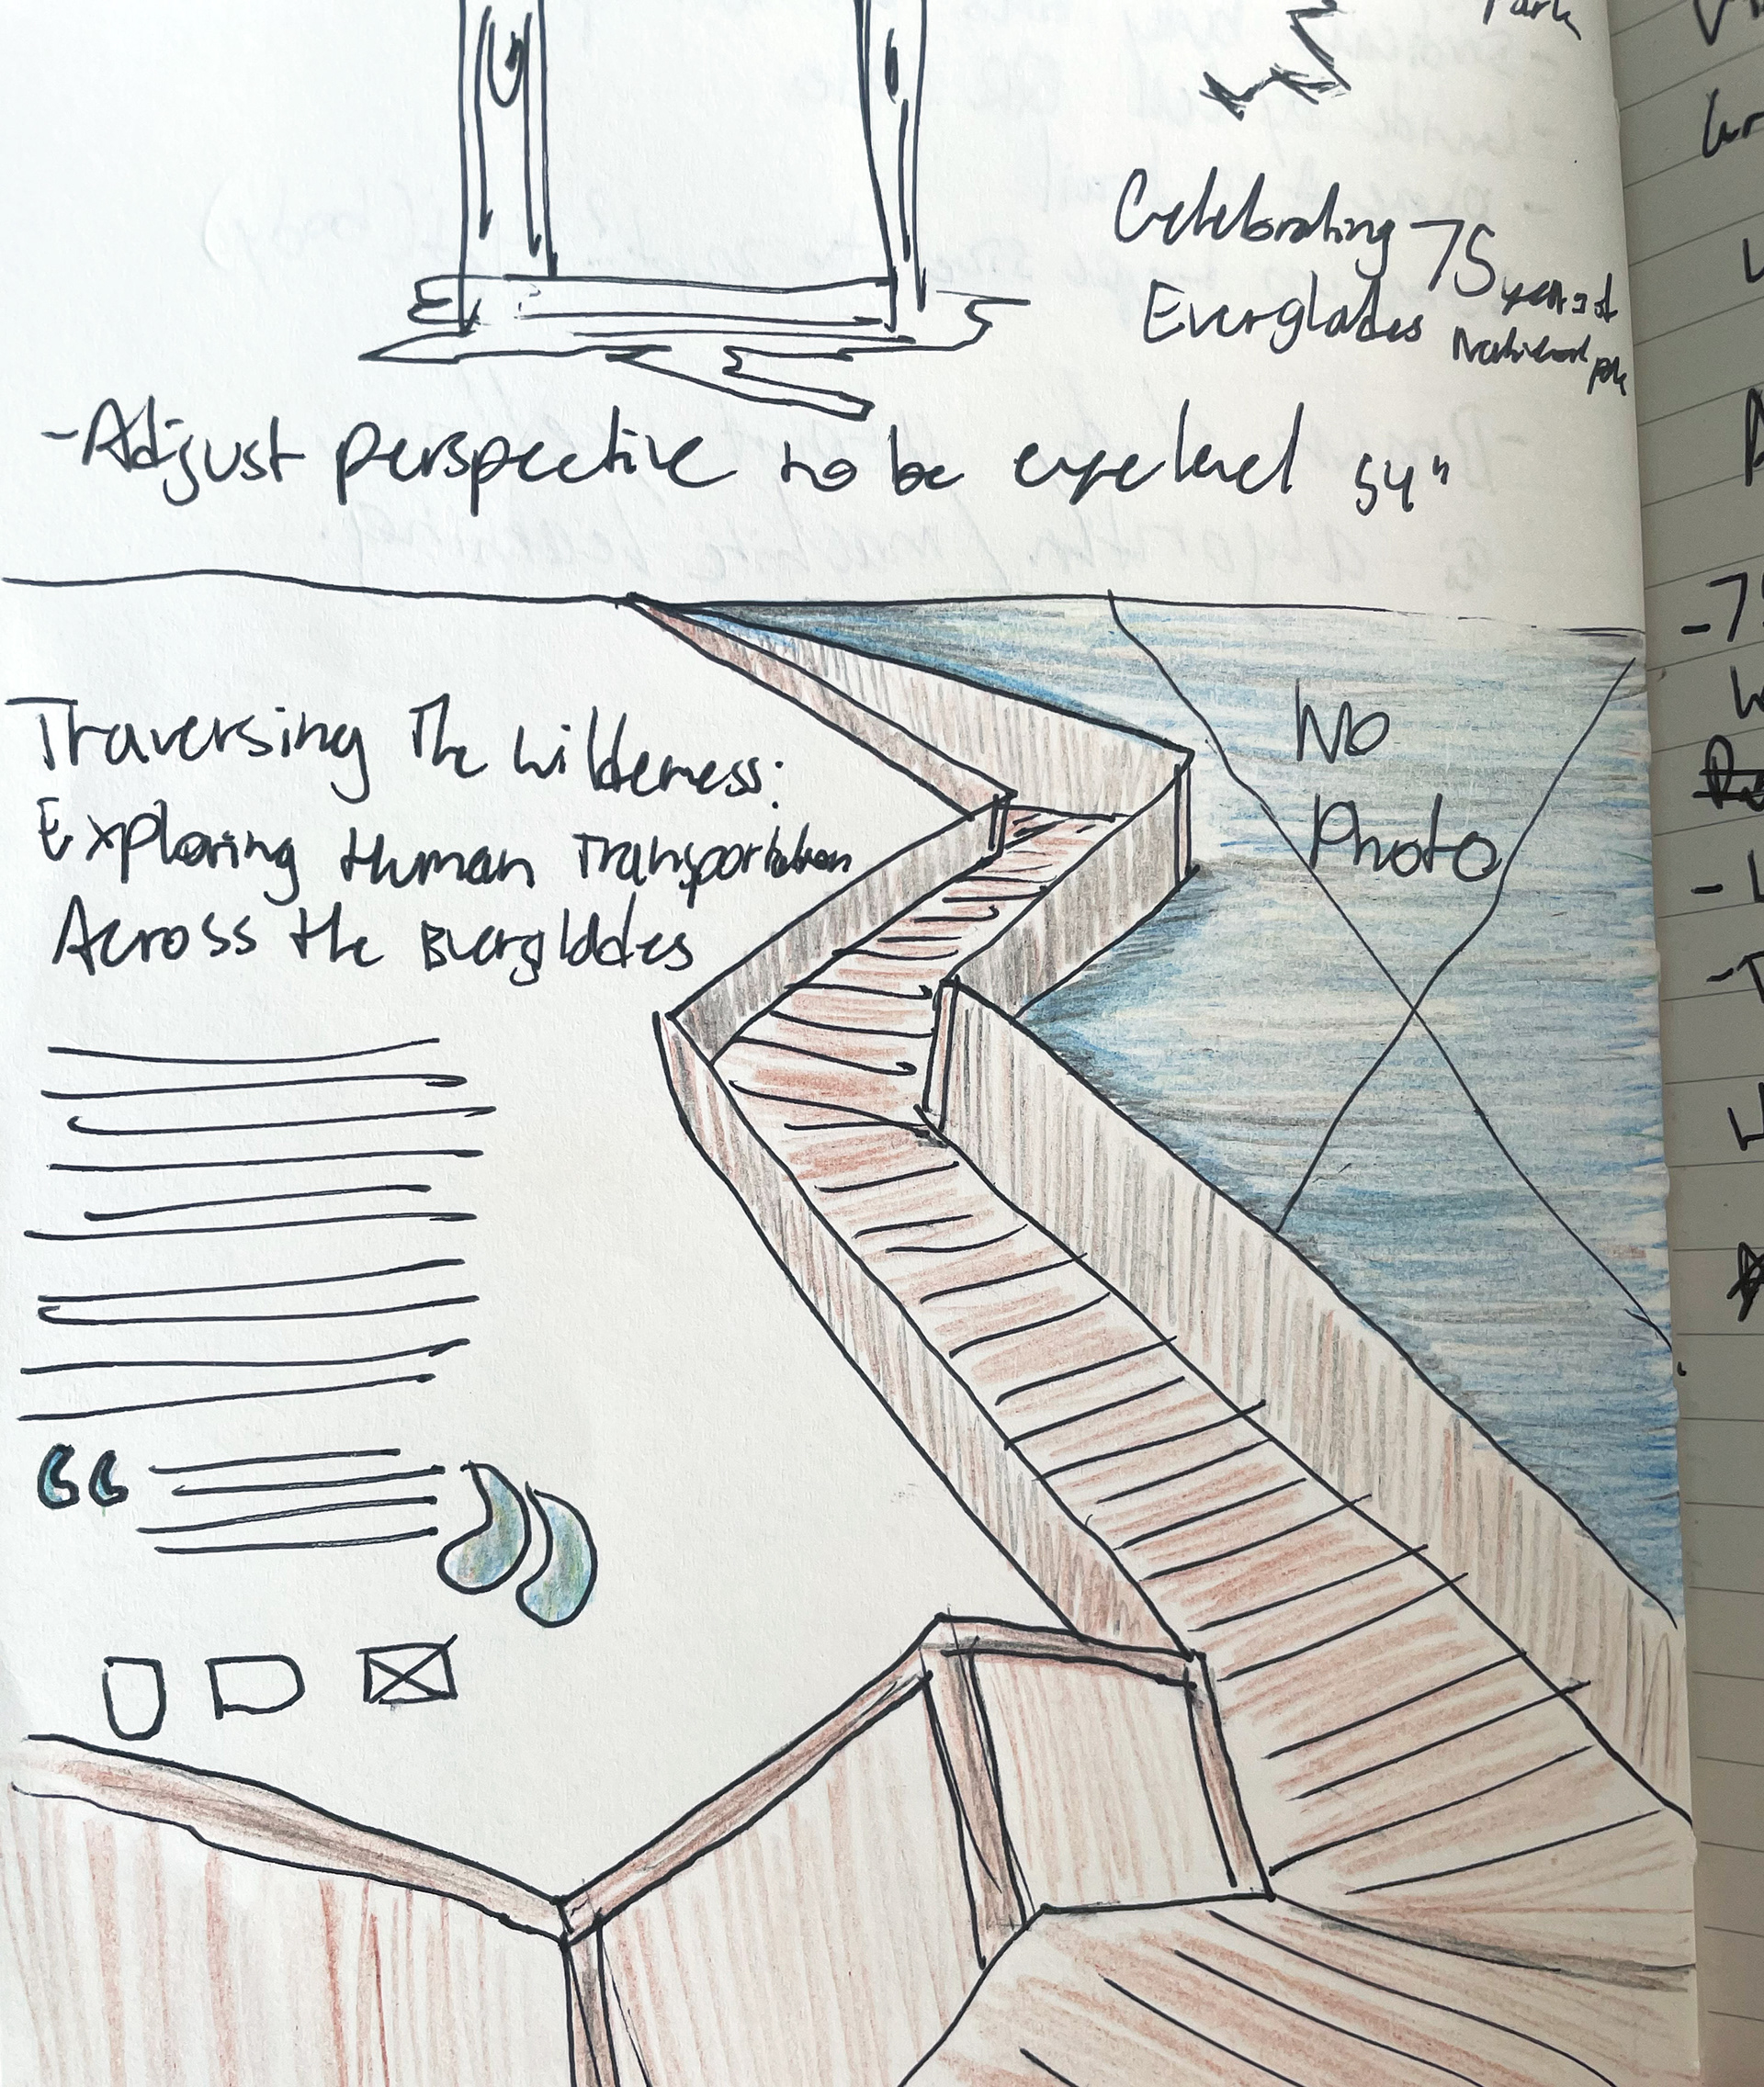 Park
Celebrating 75 years of
Everglades National pk
-Adjust perspective to be eye level 54"
Traversing The wilderness:
Exploring Human Transportation
Across the Everglades
No
Photo